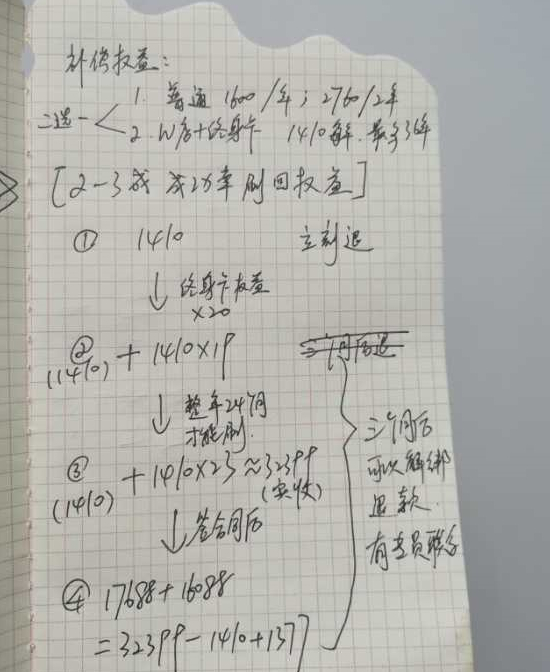 补偿权益：
二选一
1. 普通 1600/年；2760/2年
2. W店+终身卡 1410解. 最多36年
[2-3成 成功率刷回权益]
① 1410 立刻退
↓ 终身卡权益
×20
②(1410) + 1410×19
三个月后退
↓ 整年24个月
才能刷.
③(1410) + 1410×23 ≈32399
(实收)
↓ 签合同后
④ 17688+16088
=32399-1410+1377
三个月后
可以解绑
退款.
有专员联系